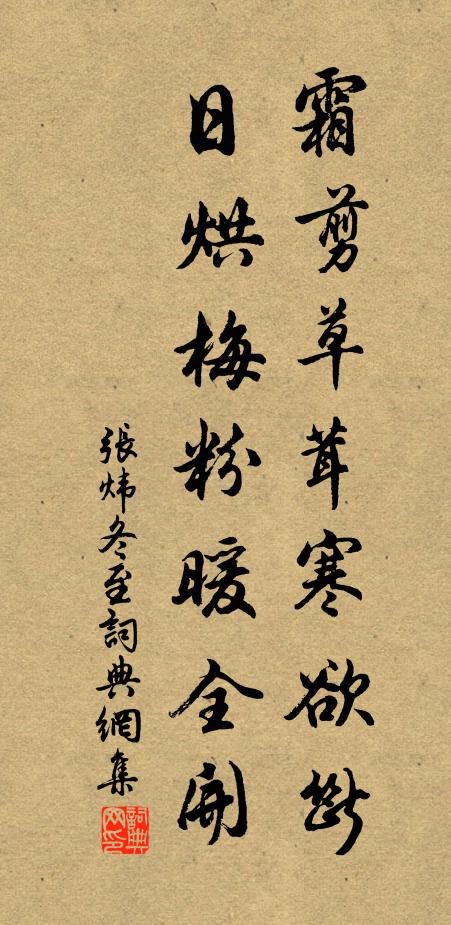 霜剪草茸寒欲断
日烘梅粉暖全開
張炜冬至詞典網集
詞典網印